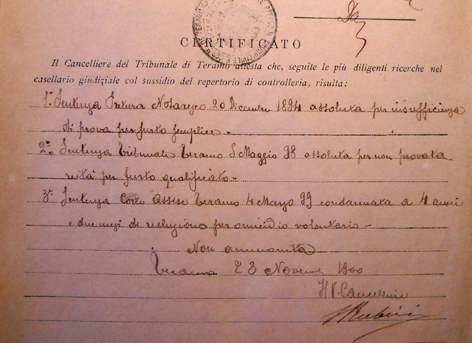 CERTIFICATO
Il Cancelliere del Tribunale di Teramo attesta che, seguite le più diligenti ricerche nel
casellario giudiziale col sussidio del repertorio di controlleria, risulta:
1ª Sentenza Pretura Notaresco 20 Dicembre 1894 assoluta per insufficienza
di prova per furto semplice -
2ª Sentenza Tribunale Teramo 5 Maggio 98 assoluta per non provata
reità per furto qualificato -
3ª Sentenza Corte Assise Teramo 4 Marzo 99 condannata a 4 anni
e due mesi di reclusione per omicidio volontario -
Non ammonita
Teramo 23 Novem 1900
Il V. Cancelliere
Rubini